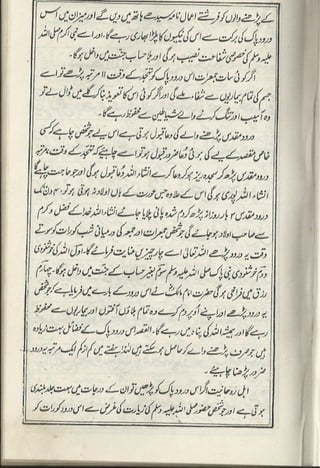 کے پڑھنے والوں کو فرشتے اعمال نامہ سیدھے ہاتھ میں دیں گے اور میزان میں اس
درود پاک کی برکت سے اس کی نیکیوں کا پلڑا بھاری رہے گا، اور اسے نبی اکرم صلی اللہ
علیہ وسلم کی خصوصی شفاعت نصیب ہوگی اور بلا حساب جنت میں داخل ہوگا۔
اگر کوئی سات جمعرات اس درود پاک کو تہجد کے وقت ۱۱ مرتبہ پڑھے تو اسے
جسم کی تمام بیماریوں سے شفاء ملے گی اور اگر کوئی اس کا تعویذ بنا کر گلے میں ڈال لے تو
وہ آسیب اور تنگ کرنے والے شیاطین سے محفوظ رہے گا۔
درود مقدس پڑھنے والے کی دعا قبول ہوتی ہے اس لیے جو شخص چاہے کہ کسی
خاص مقصد کے لیے کی ہوئی دعا ضرور قبول ہو تو اسے چاہیے کہ تہجد کے وقت مرتبہ
درود مقدس پڑھ کر سجدہ ریز ہو کر دعا کرے انشاء اللہ دعا قبول ہوگی اور جو حاجت چاہے گا
انشاء اللہ پوری ہوگی اس کے علاوہ جس عورت کے ہاں اولاد نہ ہوتی ہو تو دن تک
درود مقدس بار روزانہ پڑھ کر دم شدہ پانی پلایا جائے انشاء اللہ خدا کے فضل و کرم
سے صاحب اولاد ہو جائے گی جو شخص جمعرات اور جمعہ کی درمیانی شب کو رات کو سوتے
وقت یہ درود پڑھے اللہ تعالیٰ اسے چار چیزیں عنایت فرمائے گا۔ اول اللہ کی خوشنودی
دوم خوشنودی نبی پاک صلی اللہ علیہ وسلم سوم بغیر حساب کے جنت میں داخل ہوگا۔ چہارم
رزق میں فراخی ہوگی حضرت امام مالکؒ نے اس درود کے بارے میں فرمایا ہے کہ جو شخص
یہ درود پڑھے اور اپنے اوپر دم کرے وہ تمام بلاؤں آفتوں اور بیماریوں سے محفوظ
رہے گا اور ہمیشہ اللہ کی پناہ میں رہے گا۔ القصہ اس درود پاک کے فضائل بہت زیادہ
ہیں جو صرف پڑھنے والے کو حاصل ہو سکتے ہیں لہٰذا ہفتے میں کم از کم ایک مرتبہ یہ درود
ضرور پڑھنا چاہیئے۔
اہل روحانیت اگر اس درود پاک کو پڑھیں تو ان کے درجات میں بہت جلد بلندی
ہوتی ہے اور جو شخص حضور صلی اللہ علیہ وسلم کی زیارت کی غرض سے اس درود کو رات کو